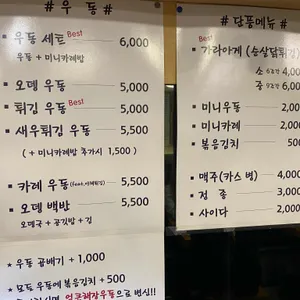 # 우 동 #
우동 세트 Best 6,000
우동 + 미니카레밥
오뎅 우동 5,000
튀김 우동 Best 5,000
새우튀김 우동 5,500
( + 미니카레밥 추가시 1,500 )
카레 우동 5,500
오뎅 백반 5,500
오뎅국 + 공깃밥 + 김
★ 우동 곱빼기 + 1,000
★ 모든 우동에 볶음김치 + 500
얼큰해장우동으로 변신!!
# 단품메뉴 #
Best
가라아게 (순살닭튀김)
소 4,000
중 6,000
미니우동 2,000
미니카레 2,000
볶음김치 500
맥주(카스 병) 4,000
정종 3,000
사이다 2,000